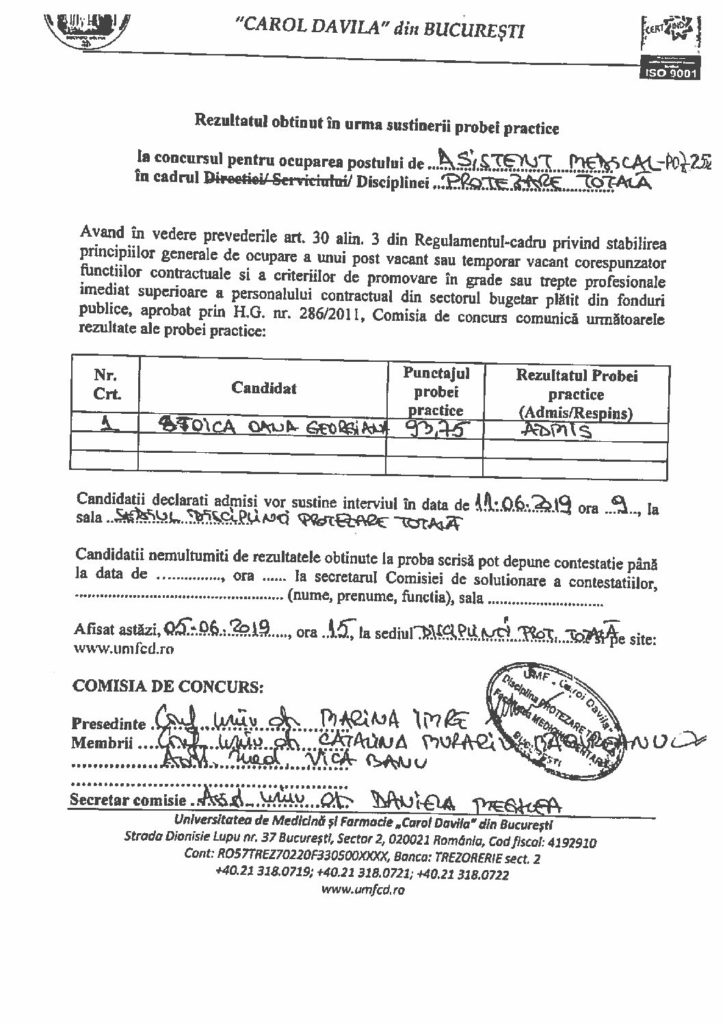 "CAROL DAVILA" din BUCUREȘTI
CERT IND
ISO 9001
Rezultatul obtinut în urma sustinerii probei practice
la concursul pentru ocuparea postului de ..ASISTENT MEDICAL-POZ 25
în cadrul Directiei/ Serviciului/ Disciplinei ..PROTEZARE TOTALĂ
Avand în vedere prevederile art. 30 alin. 3 din Regulamentul-cadru privind stabilirea
principiilor generale de ocupare a unui post vacant sau temporar vacant corespunzator
functiilor contractuale si a criteriilor de promovare în grade sau trepte profesionale
imediat superioare a personalului contractual din sectorul bugetar plătit din fonduri
publice, aprobat prin H.G. nr. 286/2011, Comisia de concurs comunică următoarele
rezultate ale probei practice:
Nr. Crt. Candidat Punctajul probei practice Rezultatul Probei practice (Admis/Respins)
1 STOICA OANA GEORGIANA 93,75 ADMIS
Candidatii declarati admisi vor sustine interviul în data de 11.06.2019 ora ..9.., la
sala ..SEDIUL DISCIPLINCI PROTEZARE TOTALĂ
Candidatii nemultumiti de rezultatele obtinute la proba scrisă pot depune contestatie până
la data de ..............., ora ...... la secretarul Comisiei de solutionare a contestatiilor,
............................................... (nume, prenume, functia), sala ..........................
Afisat astăzi, 05.06.2019....., ora ..15, la sediul DISCIPLINCI PROT. TOTALĂ si pe site:
www.umfcd.ro
COMISIA DE CONCURS:
Presedinte Conf. univ. dr. MARINA IMRE
Membrii ...Conf. univ. dr. CATALINA MURARIU MĂGUREANU
Asist. med. VICA BANU
Secretar comisie ..Asist. univ. dr. DANIELA MEGHEA
UMF "Carol Davila"
Disciplina PROTEZARE TOTALĂ
Facultatea MEDICINĂ DENTARĂ
BUCUREȘTI
Universitatea de Medicină și Farmacie „Carol Davila" din București
Strada Dionisie Lupu nr. 37 București, Sector 2, 020021 România, Cod fiscal: 4192910
Cont: RO57TREZ70220F330500XXXX, Banca: TREZORERIE sect. 2
+40.21 318.0719; +40.21 318.0721; +40.21 318.0722
www.umfcd.ro